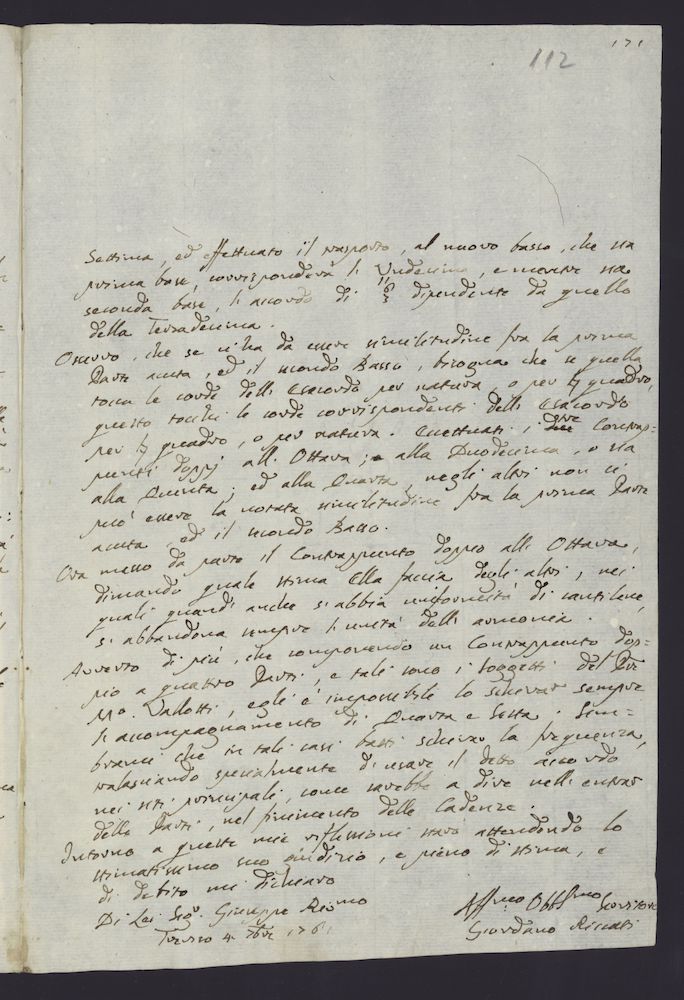 171
112
Settima, ed effettuato il trasporto, al nuovo basso, che sta
prima base, corrisponderà l' Undecima, e mentre sta
seconda base, l'accordo di 6/3 dipendente da quello
della Terzadecima.
Osservo, che se ci ha da essere similitudine fra la prima
Parte acuta, ed il secondo Basso, bisogna che se quella
tocca le corde dell' Esacordo per natura, o per ♮ quadro,
questo tocchi le corde corrispondenti dell' Esacordo
per ♮ quadro, o per natura. Eccettuati i due Contrap-
punti doppj all' Ottava, e alla Duodecima, o sia
alla Quinta, ed alla Quarta, negli altri non ci
può essere la notata similitudine fra la prima Parte
acuta, ed il secondo Basso.
Ora messo da parte il Contrappunto doppio all' Ottava,
dimando quale stima Ella faccia degli altri, nei
quali quand' anche si abbia uniformità di cantilene,
si abbandona sempre l'unità dell' armonia.
Avverto di più, che componendo un Contrappunto dop-
pio a quattro Parti, e tali sono i soggetti del Pre
Mro. Vallotti, egli è impossibile lo schivar sempre
l'accompagnamento di Quarta e Sesta. Sem-
brami che in tali casi basti schivar la frequenza,
tralasciando specialmente di usare il detto accordo
nei siti principali, come sarebbe a dire nell' entrar
delle Parti, nel finimento delle Cadenze.
Intorno a queste mie riflessioni starò attendendo lo
stimatissimo suo giudizio, e pieno di stima, e
di debito mi dichiaro
Di Lei Sigr. Giuseppe Riv.mo
Treviso 4 7bre 1761
Affmo. Obblmo Servitore
Giordano Riccati